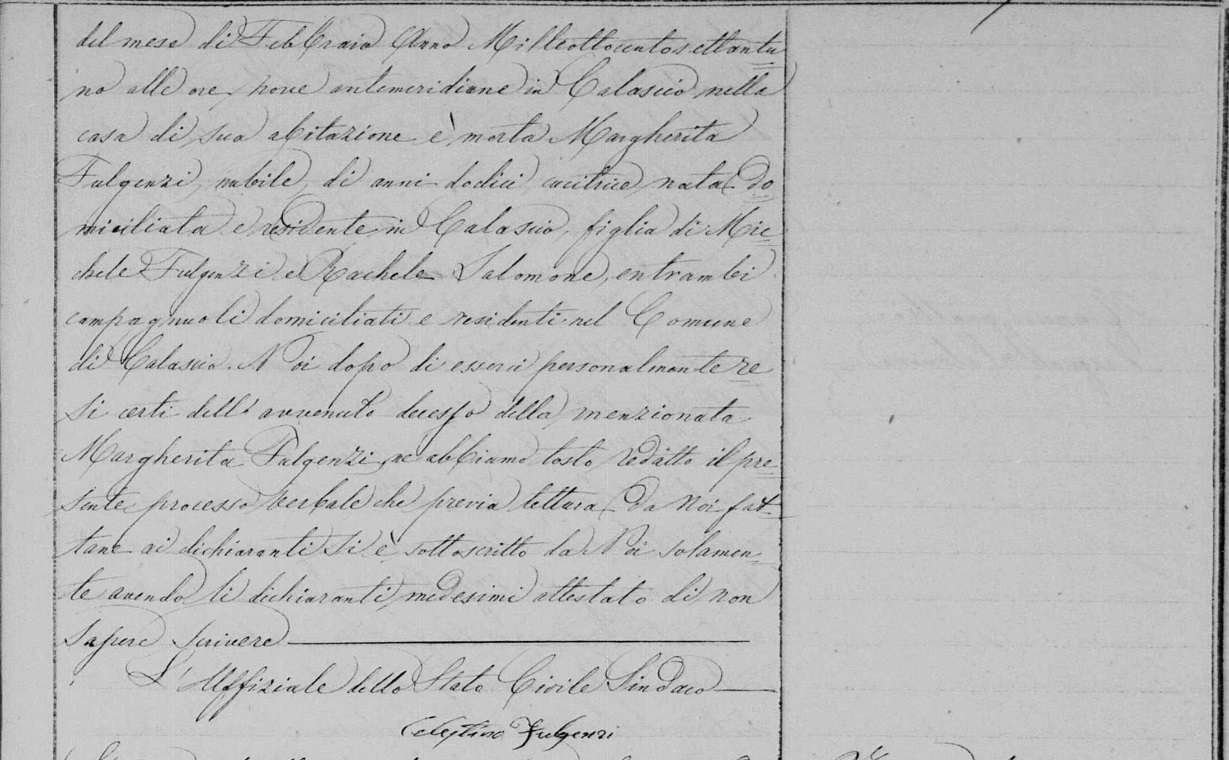 del mese di Febbraio Anno Milleottocentosettantu
no alle ore nove antemeridiane in Calascio nella
casa di sua abitazione è morta Margherita
Fulgenzi, nubile, di anni dodici, cucitrice, nata, do
miciliata e residente in Calascio, figlia di Mi
chele Fulgenzi e Rachele Salomone, entrambi
campagnuoli domiciliati e residenti nel Comune
di Calascio. Noi dopo di esserci personalmente re
si certi dell' avvenuto decesso della menzionata
Margherita Fulgenzi, ne abbiamo tosto redatto il pre
sente processo verbale che previa lettura da Noi fat
tane ai dichiaranti si è sottoscritto da Noi solamen
te avendo li dichiaranti medesimi attestato di non
sapere scrivere
L'Uffiziale dello Stato Civile Sindaco
Celestino Fulgenzi